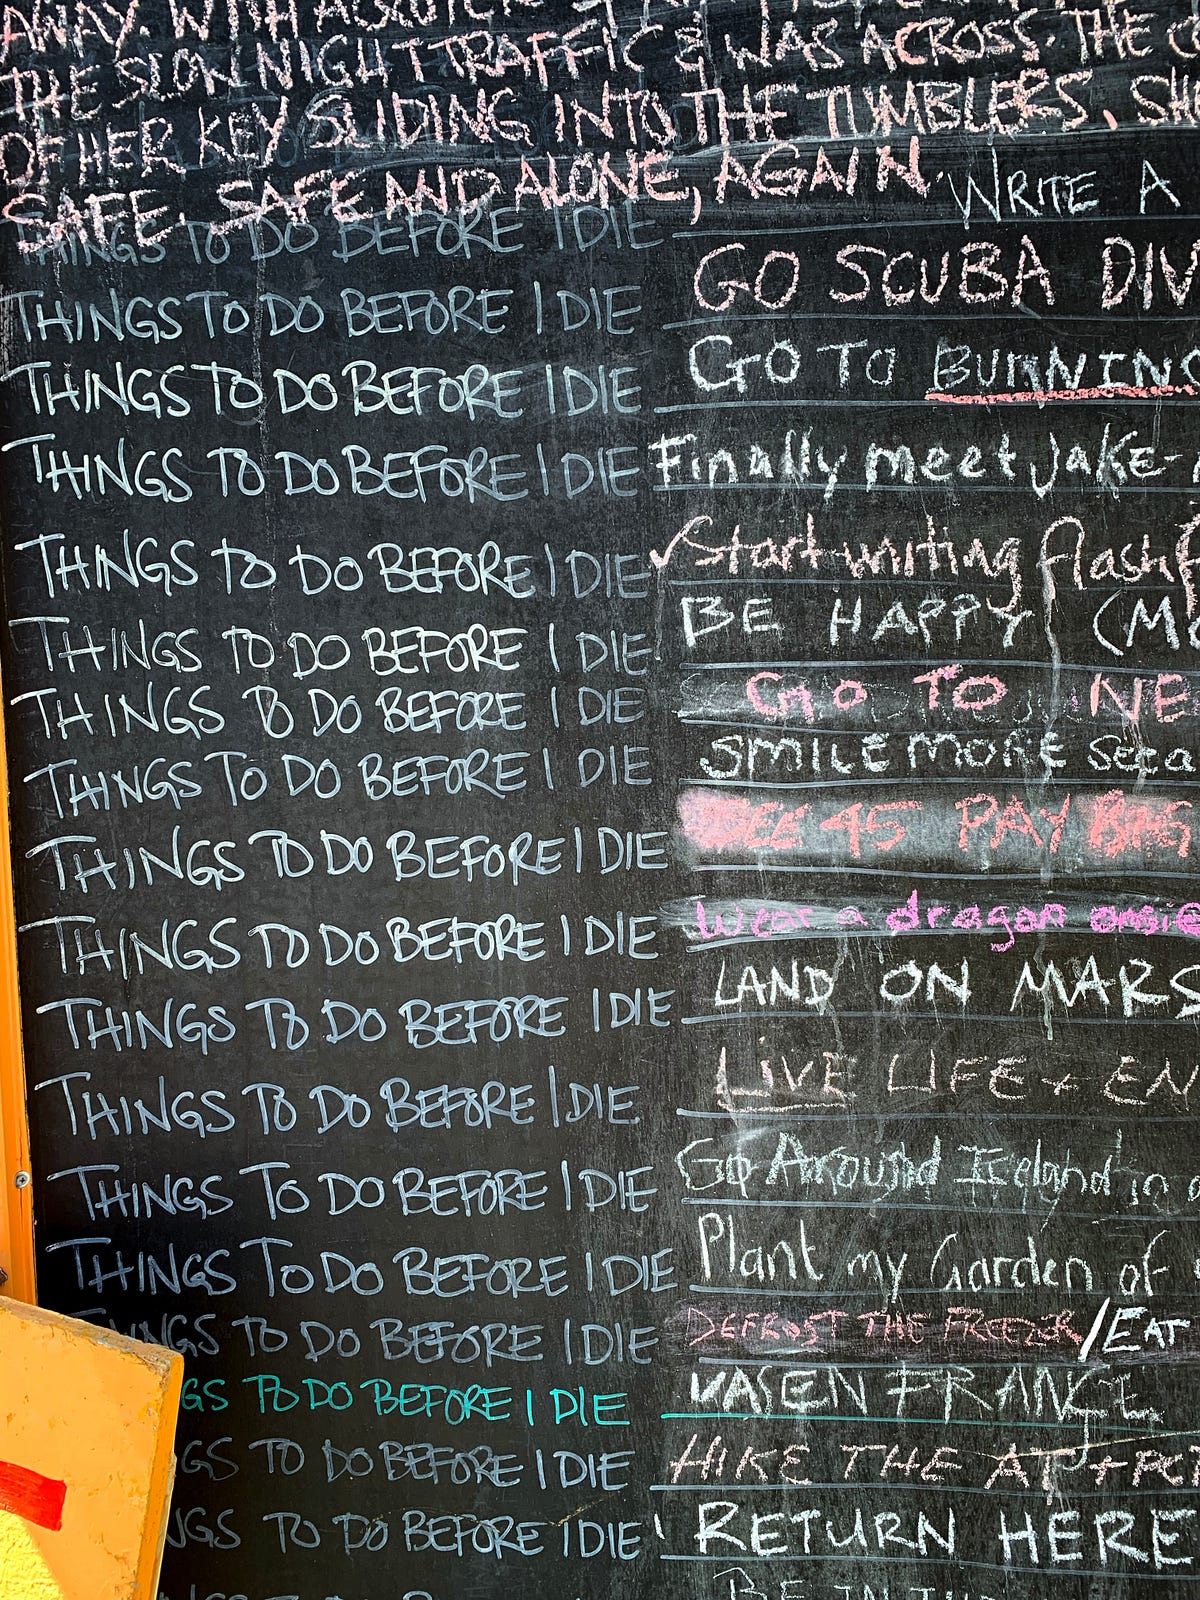 AWAY. WITH
THE SLOW NIGHT TRAFFIC & WAS ACROSS. THE
OF HER KEY SLIDING INTO THE TUMBLERS.
SAFE. SAFE AND ALONE, AGAIN.
THINGS TO DO BEFORE I DIE WRITE A
THINGS TO DO BEFORE I DIE GO SCUBA DIV
THINGS TO DO BEFORE I DIE GO TO BURNING
THINGS TO DO BEFORE I DIE Finally meet Jake-
THINGS TO DO BEFORE I DIE ✓Start writing flash
THINGS TO DO BEFORE I DIE BE HAPPY (M
THINGS TO DO BEFORE I DIE GO TO NE
THINGS TO DO BEFORE I DIE SMILE MORE
THINGS TO DO BEFORE I DIE SEE 45 PAY
THINGS TO DO BEFORE I DIE Wear a dragon onsie
THINGS TO DO BEFORE I DIE LAND ON MARS
THINGS TO DO BEFORE I DIE LIVE LIFE + EN
THINGS TO DO BEFORE I DIE Go Around Iceland in
THINGS TO DO BEFORE I DIE Plant my Garden of
THINGS TO DO BEFORE I DIE DEFROST THE FREEZER/EAT
GS TO DO BEFORE I DIE EN FRANCE
GS TO DO BEFORE I DIE HIKE THE AT
NGS TO DO BEFORE I DIE! RETURN HERE
BE IN